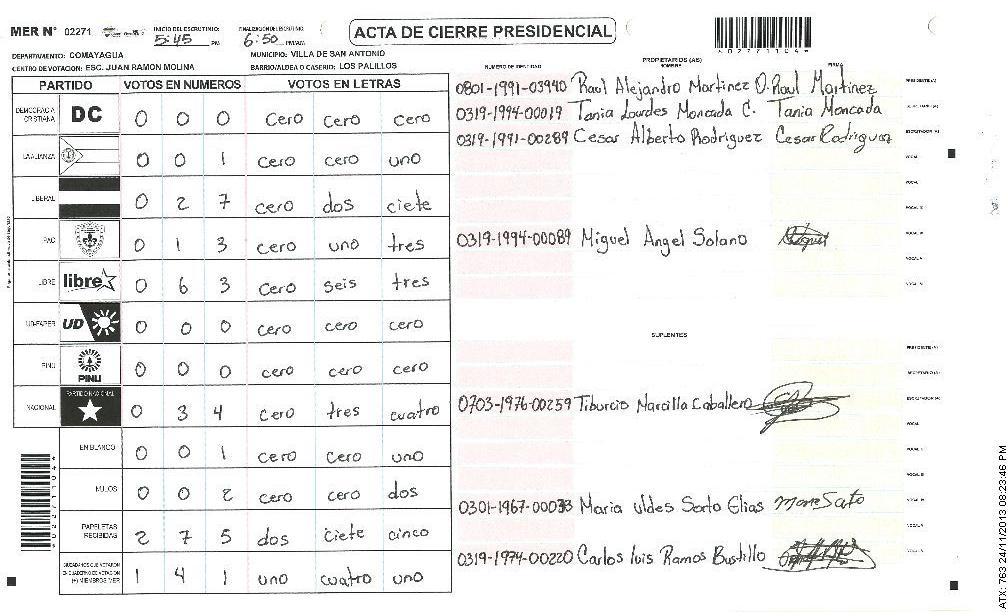 MER N° 02271 INICIO DEL ESCRUTINIO: 5:45 PM FINALIZACIÓN DEL ESCRUTINIO: 6:50 PM/AM ACTA DE CIERRE PRESIDENCIAL
DEPARTAMENTO: COMAYAGUA MUNICIPIO: VILLA DE SAN ANTONIO
CENTRO DE VOTACION: ESC. JUAN RAMON MOLINA BARRIO/ALDEA O CASERIO: LOS PALILLOS
PARTIDO VOTOS EN NUMEROS VOTOS EN LETRAS
DEMOCRACIA CRISTIANA DC 0 0 0 cero cero cero
LA ALIANZA 0 0 1 cero cero uno
LIBERAL 0 2 7 cero dos ciete
PAC 0 1 3 cero uno tres
LIBRE libre 0 6 3 cero seis tres
UD-FAPER UD 0 0 0 cero cero cero
PINU PINU 0 0 0 cero cero cero
NACIONAL PARTIDO NACIONAL 0 3 4 cero tres cuatro
EN BLANCO 0 0 1 cero cero uno
NULOS 0 0 2 cero cero dos
PAPELETAS RECIBIDAS 2 7 5 dos ciete cinco
CIUDADANOS QUE VOTARON EN CUADERNO DE VOTACION (+) MIEMBROS MER 1 4 1 uno cuatro uno
PROPIETARIOS (AS)
NUMERO DE IDENTIDAD NOMBRE FIRMA
0801-1991-03940 Raul Alejandro Martinez O. Raul Martinez PRESIDENTE(A)
0319-1994-00019 Tania Lourdes Moncada C. Tania Moncada SECRETARIO(A)
0319-1991-00289 Cesar Alberto Rodriguez Cesar Rodriguez ESCRUTADOR(A)
VOCAL I
VOCAL II
VOCAL III
0319-1994-00089 Miguel Angel Solano Miguel VOCAL IV
VOCAL V
VOCAL VI
SUPLENTES
PRESIDENTE(A)
SECRETARIO(A)
0703-1976-00259 Tiburcio Narcilla Caballero ESCRUTADOR(A)
VOCAL I
VOCAL II
VOCAL III
0301-1967-00033 Maria Ildes Sorto Elias VOCAL IV
VOCAL V
0319-1974-00220 Carlos luis Ramos Bustillo VOCAL VI
*02271104*
ATX: 763 24/11/2013 08:23:46 PM